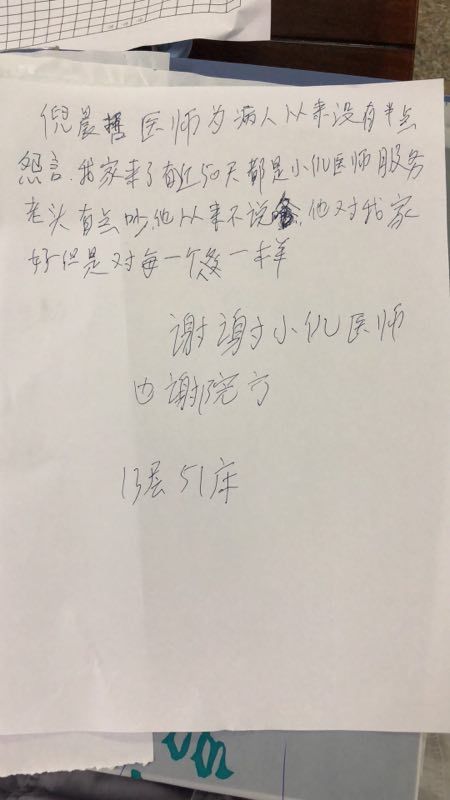 倪晨哲医师为病人从来没有半点
怨言.我家来了有近50天都是小倪医师服务
老头有点吵他从来不说 他对我家
好但是对每一个 一样
谢谢小倪医师
也谢院方
13层51床